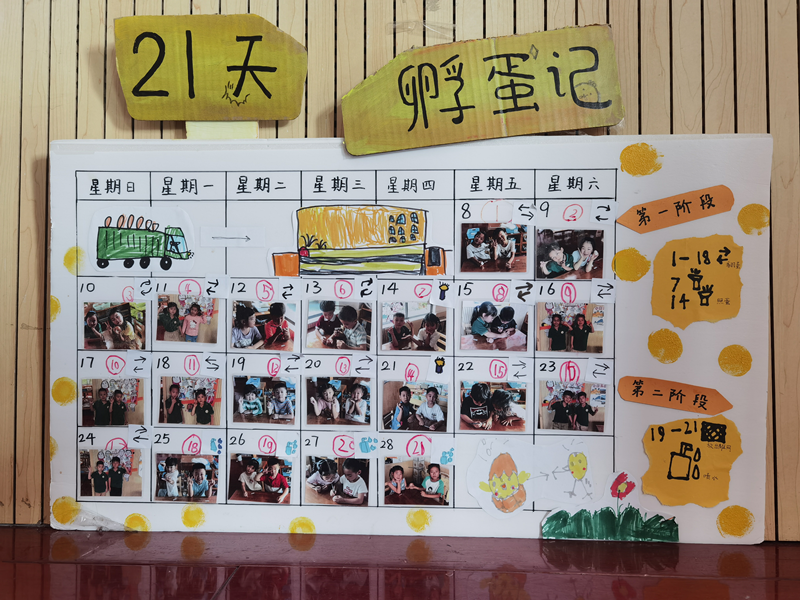 21天
孵蛋记
星期日 星期一 星期二 星期三 星期四 星期五 星期六
8 1 9 2
10 3 11 4 12 5 13 6 14 7 15 8 16 9
17 10 18 11 19 12 20 13 21 14 22 15 23 16
24 17 25 18 26 19 27 20 28 21
第一阶段
1-18
7
14
第二阶段
19-21